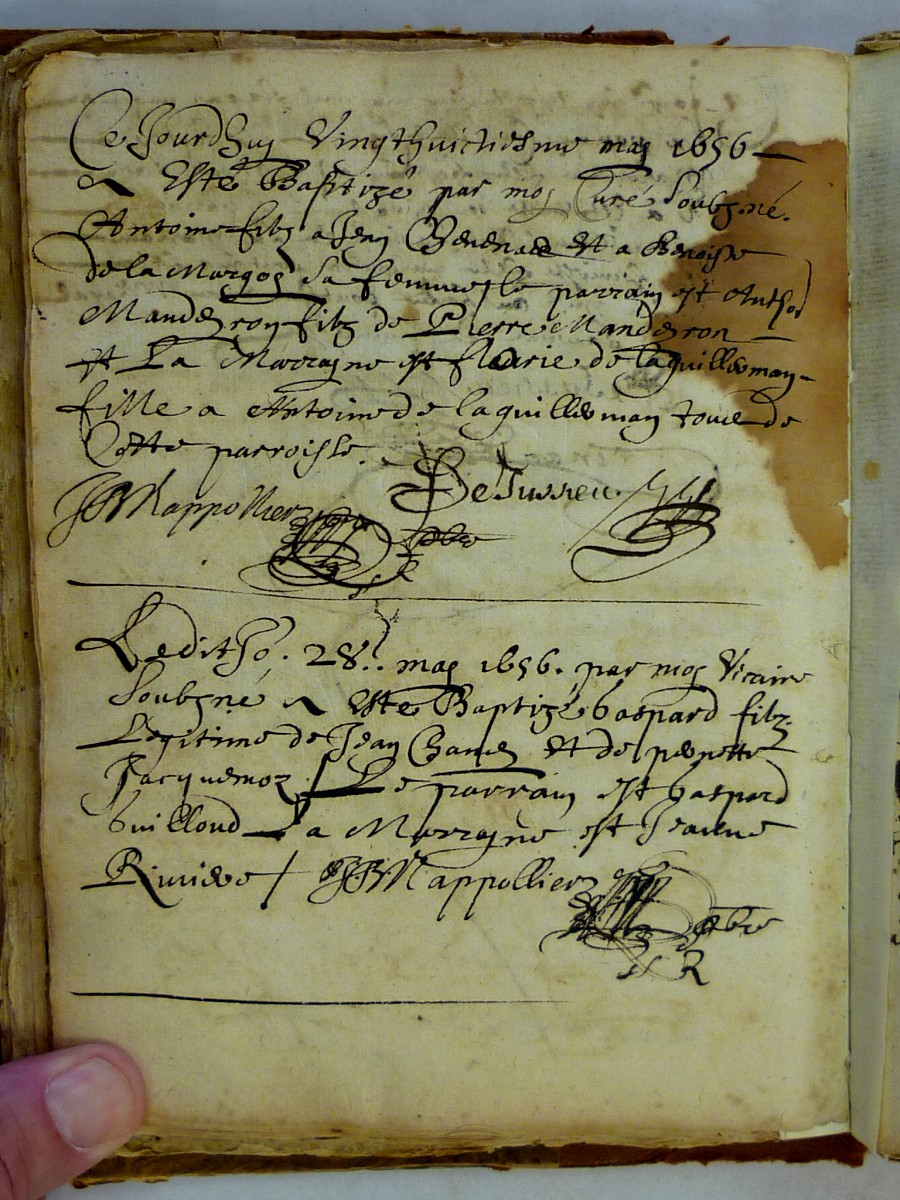 Ce Jourdhuy Vingthuictiesme may 1656
a Esté Baptizé par moy Curé Soubzné.
Antoine filz a Jean et a Benoiste
de la sa femme le parrain est Anthoe
Mandeyron filz de Pierre Mandeyron
et La Marrayne est Marie de laguilleman
fille a Antoine de laguilleman tous de
Cette parroisse.
JMappollier DeJussieu
pbre
Ledit Jo. 28e. may 1656. par moy Vicaire
Soubzné a Esté Baptizé Gaspard filz
Legitime de Jean et de pernette
Jacquemoz Le parrain est Gaspard
Guilloud La Marrayne est Jeanne
Riviere JMappollier
pbre